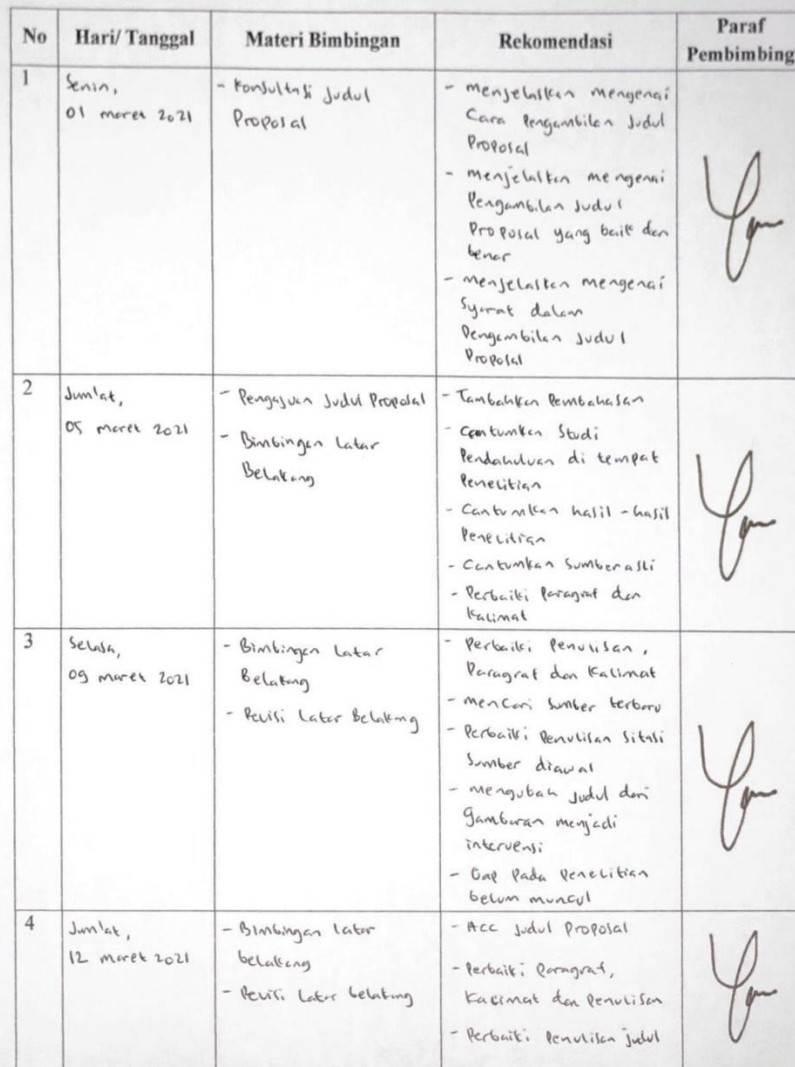 No
Hari/ Tanggal
Materi Bimbingan
Rekomendasi
Paraf
Pembimbing
1
Senin,
01 maret 2021
- Konsultasi Judul
Proposal
- menjelaskan mengenai
Cara Pengambilan Judul
Proposal
- menjelaskan mengenai
Pengambilan Judul
Proposal yang baik dan
benar
- menjelaskan mengenai
Syarat dalam
Pengambilan Judul
Proposal
2
Jum'at,
05 maret 2021
- Pengajuan Judul Proposal
- Bimbingan Latar
Belakang
- Tambahkan Pembahasan
- Cantumkan Studi
Pendahuluan di tempat
Penelitian
- Cantumkan hasil-hasil
Penelitian
- Cantumkan Sumber asli
- Perbaiki Paragraf dan
Kalimat
3
Selasa,
09 maret 2021
- Bimbingan Latar
Belakang
- Revisi Latar Belakang
- Perbaiki Penulisan,
Paragraf dan Kalimat
- mencari Sumber terbaru
- Perbaiki Penulisan Sitasi
Sumber diawal
- mengubah Judul dari
gambaran menjadi
intervensi
- Gap Pada Penelitian
belum muncul
4
Jum'at,
12 maret 2021
- Bimbingan Latar
belakang
- Revisi Latar belakang
- Acc Judul Proposal
- Perbaiki Paragraf,
Kalimat dan Penulisan
- Perbaiki Penulisan judul